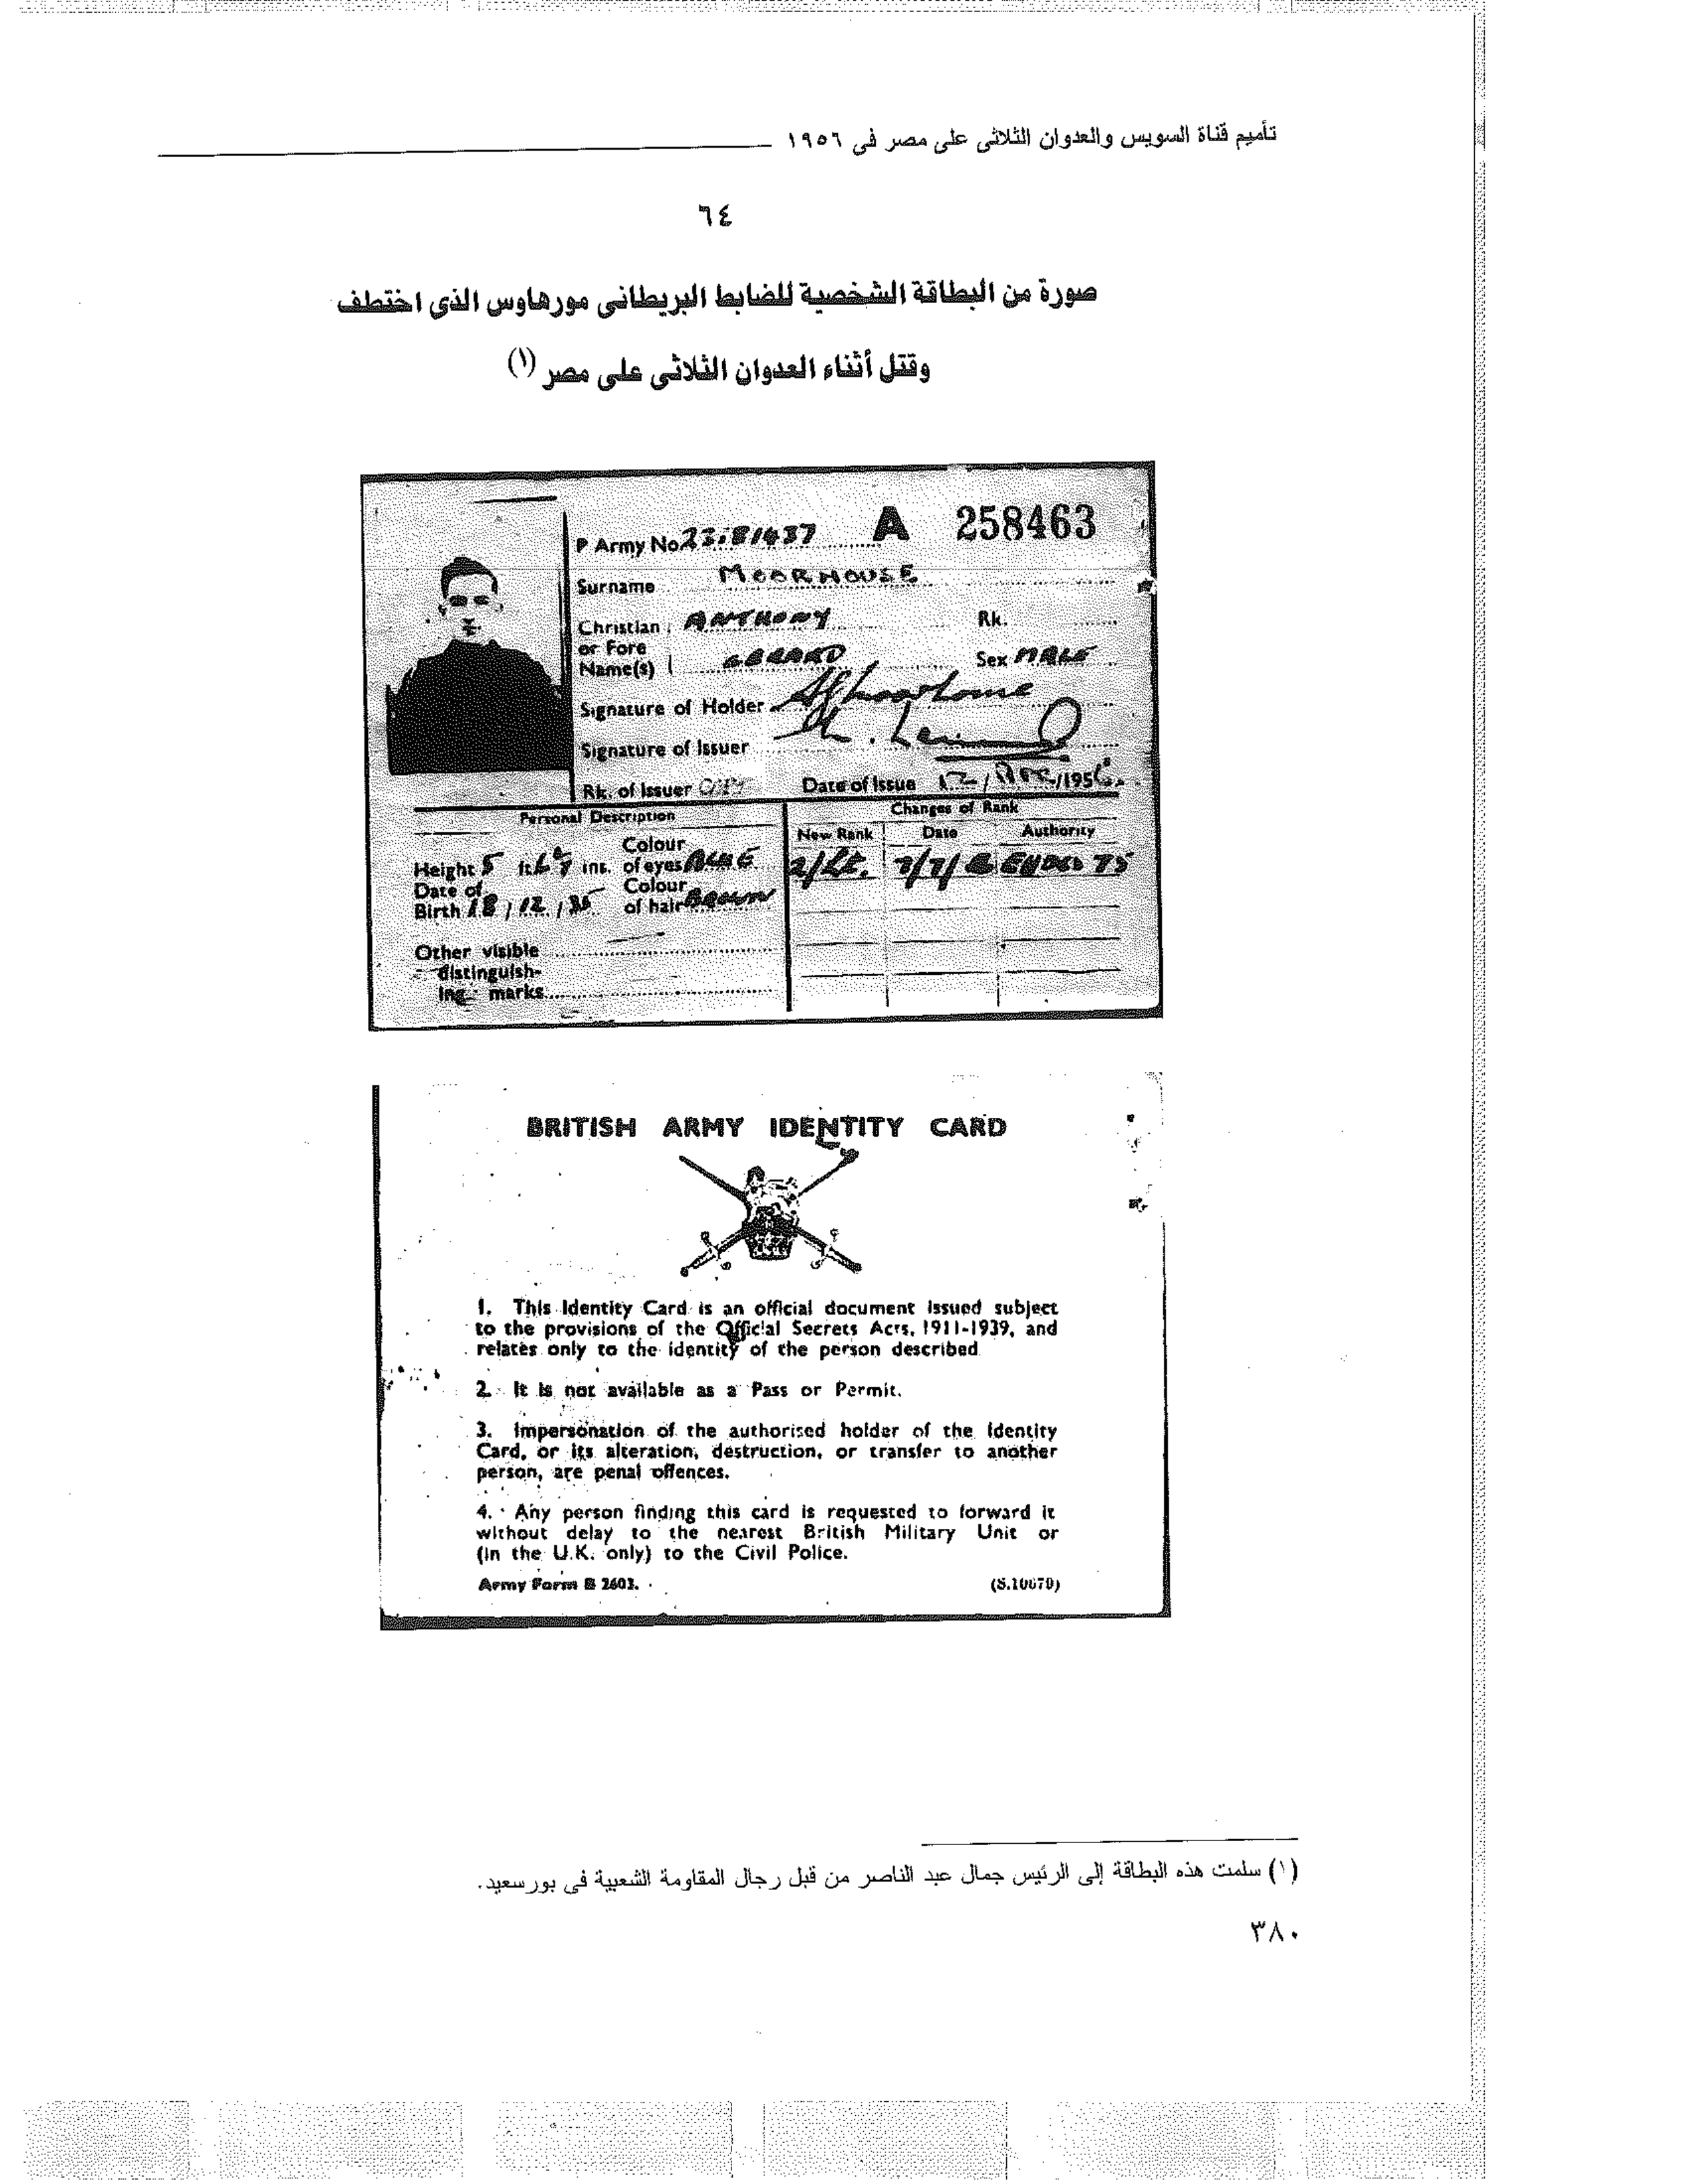 تأميم قناة السويس والعدوان الثلاثى على مصر فى ١٩٥٦
٦٤
صورة من البطاقة الشخصية للضابط البريطانى مورهاوس الذى اختطف
وقتل أثناء العدوان الثلاثى على مصر (١)
P Army No. A 258463
Surname MOORHOUSE
Christian ANTHONY Rk.
or Fore
Name(s) GERARD Sex MALE
Signature of Holder
Signature of Issuer
Rk. of Issuer Date of Issue 12/ /1956.
Personal Description Changes of Rank
New Rank Date Authority
Height 5 ft. ins. Colour of eyes BLUE 2/Lt. 7/7/
Date of Birth 18/12/35 Colour of hair BROWN
Other visible
distinguish-
ing marks
BRITISH ARMY IDENTITY CARD
1. This Identity Card is an official document issued subject
to the provisions of the Official Secrets Acts, 1911-1939, and
relates only to the identity of the person described
2. It is not available as a Pass or Permit.
3. Impersonation of the authorised holder of the Identity
Card, or its alteration, destruction, or transfer to another
person, are penal offences.
4. Any person finding this card is requested to forward it
without delay to the nearest British Military Unit or
(in the U.K. only) to the Civil Police.
Army Form B 2603. (S.10679)
(١) سلمت هذه البطاقة إلى الرئيس جمال عبد الناصر من قبل رجال المقاومة الشعبية فى بورسعيد.
٣٨٠